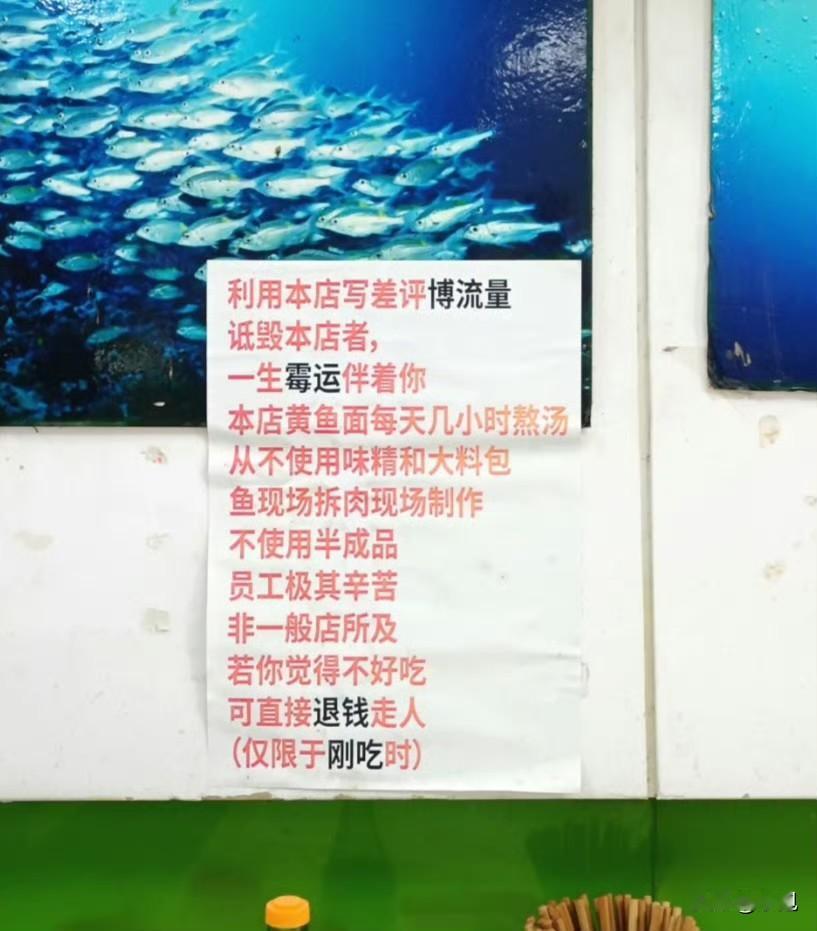 利用本店写差评博流量
诋毁本店者，
一生霉运伴着你
本店黄鱼面每天几小时熬汤
从不使用味精和大料包
鱼现场拆肉现场制作
不使用半成品
员工极其辛苦
非一般店所及
若你觉得不好吃
可直接退钱走人
（仅限于刚吃时）